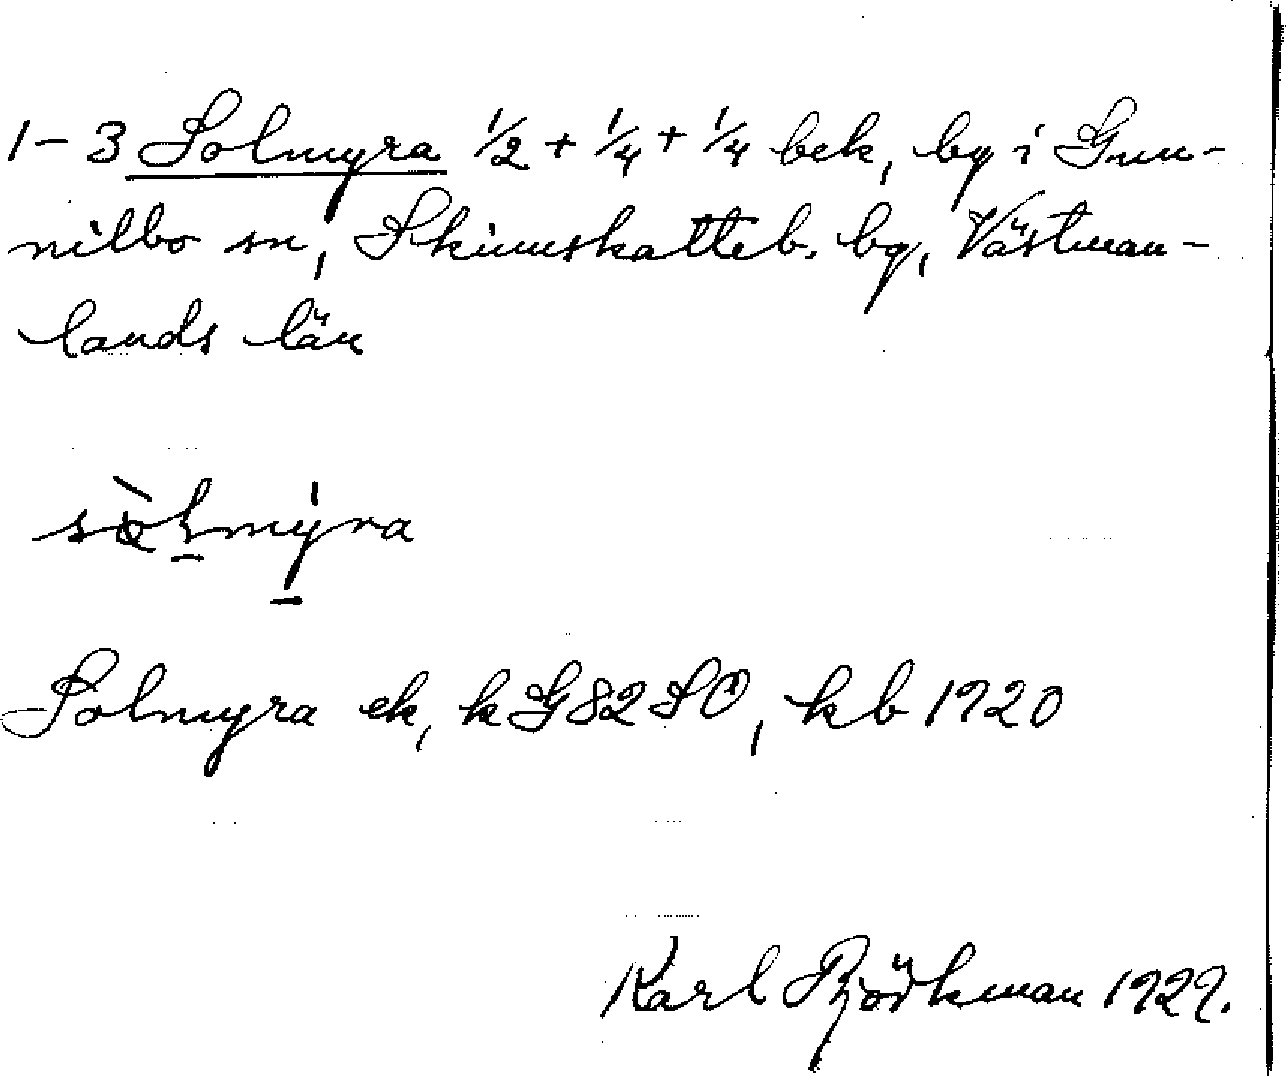 1-3 Solmyra 1/2 + 1/4 + 1/4 bek, by i Gun-
nilbo sn, Skinnskatteb. bg, Västman-
lands län
sòlmýra
Solmyra ek, k G 82 SO, kb 1920
Karl Björkman 1929.